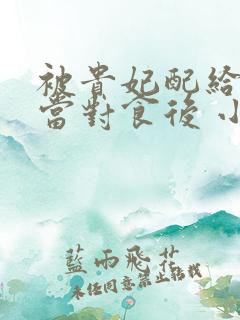 被貴妃配給
當對食後 小
藍雨飛花
未经同意禁止转载